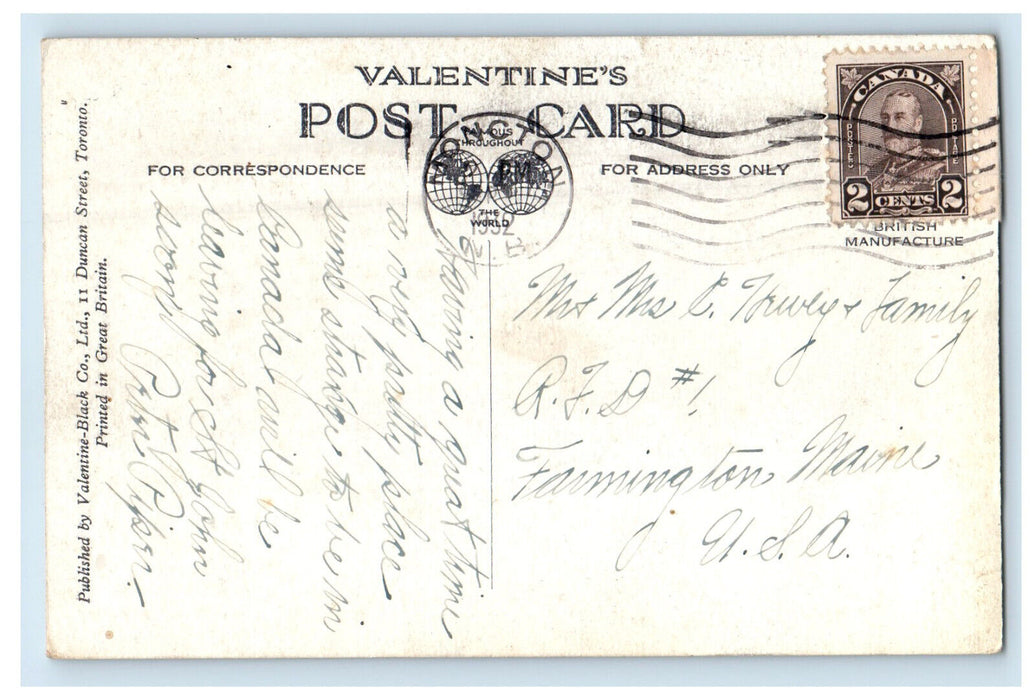 VALENTINE'S
POST CARD
FOR CORRESPONDENCE
FOR ADDRESS ONLY
FAMOUS
THROUGHOUT
THE
WORLD
MONCTON
PM
1932
N. B.
CANADA
POSTES
POSTAGE
2 CENTS 2
BRITISH
MANUFACTURE
Published by Valentine-Black Co., Ltd., 11 Duncan Street, Toronto.
Printed in Great Britain.
Having a great time
a very pretty place
seems strange to be in
Canada will be
leaving for St John
soon
Mr + Mrs C. + Family
R. F. D #1
Farmington Maine
U. S. A.